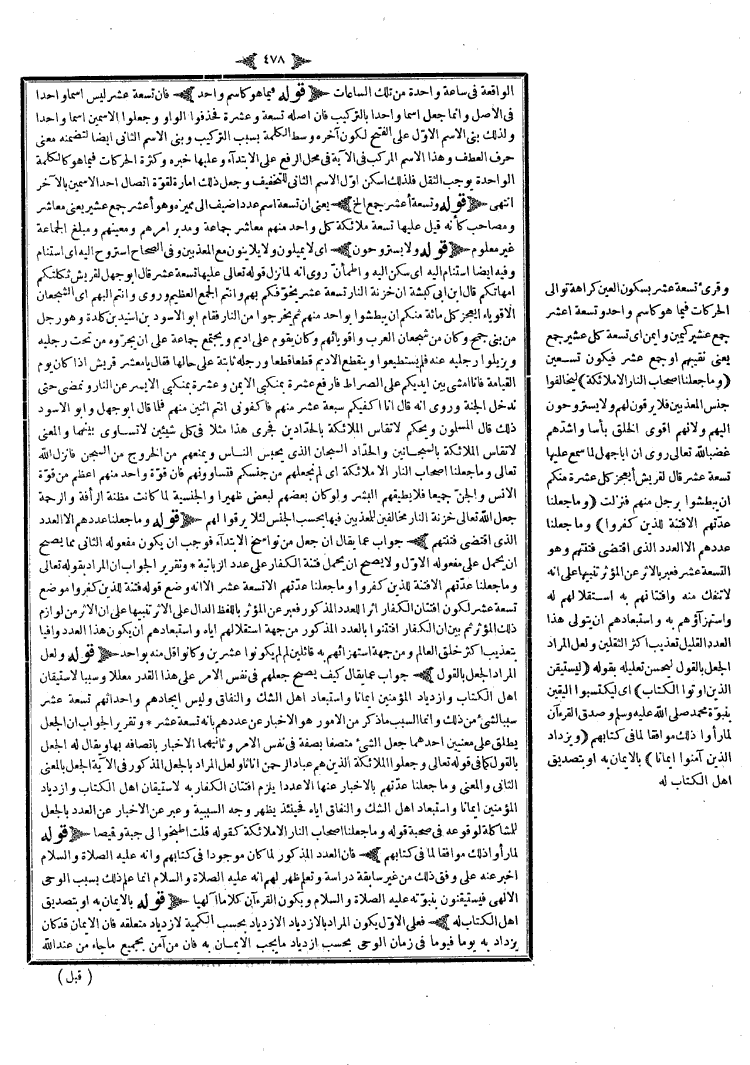 ٤٧٨
الواقعة فى ساعة واحدة من تلك الساعات قوله فيما هو كاسم واحد فان تسعة عشر ليس اسما واحدا
فى الأصل وانما جعل اسما واحدا بالتركيب فان اصله تسعة وعشرة فحذفوا الواو وجعلوا الاسمين اسما واحدا
ولذلك بنى الاسم الاوّل على الفتح لكون آخره وسط الكلمة بسبب التركيب وبنى الاسم الثانى ايضا لتضمنه معنى
حرف العطف وهذا الاسم المركب فى الآية فى محل الرفع على الابتدآء وعليها خبره وكثرة الحركات فيما هو كالكلمة
الواحدة يوجب الثقل فلذلك اسكن اوّل الاسم الثانى للتخفيف وجعل ذلك امارة لقوّة اتصال احد الاسمين بالآخر
انتهى قوله وتسعة أعشر جمع الخ يعنى ان تسعة اسم عدد اضيف الى مميزه وهو أعشر جمع عشير يعنى معاشر
ومصاحب كأنه قيل عليها تسعة ملائكة كل واحد منهم معاشر جماعة ومدبر امرهم ومعينهم ومبلغ الجماعة
غير معلوم قوله ولا يستروحون اى لا يميلون ولا يلاينون مع المعذبين وفى الصحاح استروح اليه اى استنام
وفيه ايضا استنام اليه اى سكن اليه واطمأنّ روى انه لما نزل قوله تعالى عليها تسعة عشر قال ابو جهل لقريش ثكلتكم
امهاتكم قال ابن ابى كبشة ان خزنة النار تسعة عشر يخوّفكم بهم وانتم الجمع العظيم وروى وانتم البهم اى الشجعان
الاقوياء ايعجز كل مائة منكم ان يبطشوا بواحد منهم ثم يخرجوا من النار فقام ابو الاسود بن اسيد بن كلدة وهو رجل
من بنى جمح وكان من شجعان العرب واقويائهم وكان يقوم على اديم ويجتمع جماعة على ان يجرّوه من تحت رجليه
ويزيلوا رجليه عنه فلم يستطيعوا وينقطع الاديم قطعا قطعا ورجله ثابتة على حالها فقال يا معشر قريش اذا كان يوم
القيامة فانا امشى بين ايديكم على الصراط فارفع عشرة بمنكبى الايمن وعشرة بمنكبى الايسر عن النار ونمضى حتى
ندخل الجنة وروى انه قال انا اكفيكم سبعة عشر منهم فاكفونى انتم اثنين منهم فلما قال ابو جهل وابو الاسود
ذلك قال المسلمون ويحكم لا تقاس الملائكة بالحدّادين فجرى هذا مثلا فى كل شيئين لا تساوى بينهما والمعنى
لا تقاس الملائكة بالسجانين والحدّاد السجان الذى يحبس الناس ويمنعهم من الخروج من السجن فانزل الله
تعالى وما جعلنا اصحاب النار الا ملائكة اى لم نجعلهم من جنسكم فتساوونهم فان قوّة واحد منهم اعظم من قوّة
الانس والجنّ جميعا فلا يطيقهم البشر ولو كان بعضهم لبعض ظهيرا والجنسية لما كانت مظنة الرأفة والرحمة
جعل الله تعالى خزنة النار مخالفين للمعذبين فيها بحسب الجنس لئلا يرقوا لهم قوله وما جعلنا عددهم الا العدد
الذى اقتضى فتنتهم جواب عما يقال ان جعل من نواسخ الابتدآء فوجب ان يكون مفعوله الثانى مما يصح
ان يحمل على مفعوله الاوّل ولا يصح ان يحمل فتنة الكفار على عدد الزبانية * وتقرير الجواب ان المراد بقوله تعالى
وما جعلنا عدّتهم الا فتنة للذين كفروا وما جعلنا عدّتهم الا تسعة عشر الا انه وضع قوله فتنة للذين كفروا موضع
تسعة عشر لكون افتتان الكفار اثرا للعدد المذكور فعبر عن المؤثر باللفظ الدال على الاثر تنبيها على ان الاثر من لوازم
ذلك المؤثر ثم بين ان الكفار افتتنوا بالعدد المذكور من جهة استقلالهم اياه واستبعادهم ان يكون هذا العدد وافيا
بتعذيب اكثر خلق العالم ومن جهة استهزائهم به قائلين لم لم يكونوا عشرين وكانوا اقل منه بواحد قوله ولعل
المراد الجعل بالقول جواب عما يقال كيف يصح جعلهم فى نفس الامر على هذا القدر معللا وسببا لاستيقان
اهل الكتاب وازدياد المؤمنين ايمانا واستبعاد اهل الشك والنفاق وليس ايجادهم واحداثهم تسعة عشر
سببا لشئ من ذلك وانما السبب ما ذكر من الامور هو الاخبار عن عددهم بانه تسعة عشر * وتقرير الجواب ان الجعل
يطلق على معنيين احدهما جعل الشئ متصفا بصفة فى نفس الامر وثانيهما الاخبار باتصافه بها ويقال له الجعل
بالقول كما فى قوله تعالى وجعلوا الملائكة الذين هم عباد الرحمن اناثا ولعل المراد بالجعل المذكور فى الآية الجعل بالمعنى
الثانى والمعنى وما جعلنا عدّتهم بالاخبار عنها الا عددا يلزم افتتان الكفار به لاستيقان اهل الكتاب وازدياد
المؤمنين ايمانا واستبعاد اهل الشك والنفاق اياه فحينئذ يظهر وجه السببية وعبر عن الاخبار عن العدد بالجعل
للمشاكلة لوقوعه فى صحبة قوله وما جعلنا اصحاب النار الا ملائكة كقوله قلت اطبخوا لى جبة وقميصا قوله
لما رأوا ذلك موافقا لما فى كتابهم فان العدد المذكور لما كان موجودا فى كتابهم وانه عليه الصلاة والسلام
اخبر عنه على وفق ذلك من غير سابقة دراسة وتعلم ظهر لهم انه عليه الصلاة والسلام انما علم ذلك بسبب الوحى
الالهى فيستيقنون بنبوّته عليه الصلاة والسلام وبكون القرءآن كلاما الهيا قوله بالايمان به او بتصديق
اهل الكتاب له فعلى الاوّل يكون المراد بالازدياد الازدياد بحسب الكمية لازدياد متعلقه فان الايمان قد كان
يزداد به يوما فيوما فى زمان الوحى بحسب ازدياد ما يجب الايمان به فان من آمن بجميع ما جاء من عند الله
( قبل )
وقرئ تسعة عشر بسكون العين كراهة توالى
الحركات فيما هو كاسم واحد وتسعة اعشر
جمع عشير كيمين وايمن اى تسعة كل عشير جمع
يعنى نقيبهم او جمع عشر فيكون تسعين
(وما جعلنا اصحاب النار الا ملائكة) ليخالفوا
جنس المعذبين فلا يرقون لهم ولا يستروحون
اليهم ولانهم اقوى الخلق بأسا واشدّهم
غضبا لله تعالى روى ان ابا جهل لما سمع عليها
تسعة عشر قال لقريش أيعجز كل عشرة منكم
ان يبطشوا برجل منهم فنزلت (وما جعلنا
عدّتهم الا فتنة للذين كفروا) وما جعلنا
عددهم الا العدد الذى اقتضى فتنتهم وهو
التسعة عشر فعبر بالاثر عن المؤثر تنبيها على انه
لا تنفك منه وافتتانهم به استقلالهم له
واستهزآؤهم به واستبعادهم ان يتولى هذا
العدد القليل تعذيب اكثر الثقلين ولعل المراد
الجعل بالقول ليحسن تعليله بقوله (ليستيقن
الذين اوتوا الكتاب) اى ليكتسبوا اليقين
بنبوّة محمد صلى الله عليه وسلم وصدق القرءآن
لما رأوا ذلك موافقا لما فى كتابهم (ويزداد
الذين آمنوا ايمانا) بالايمان به او بتصديق
اهل الكتاب له